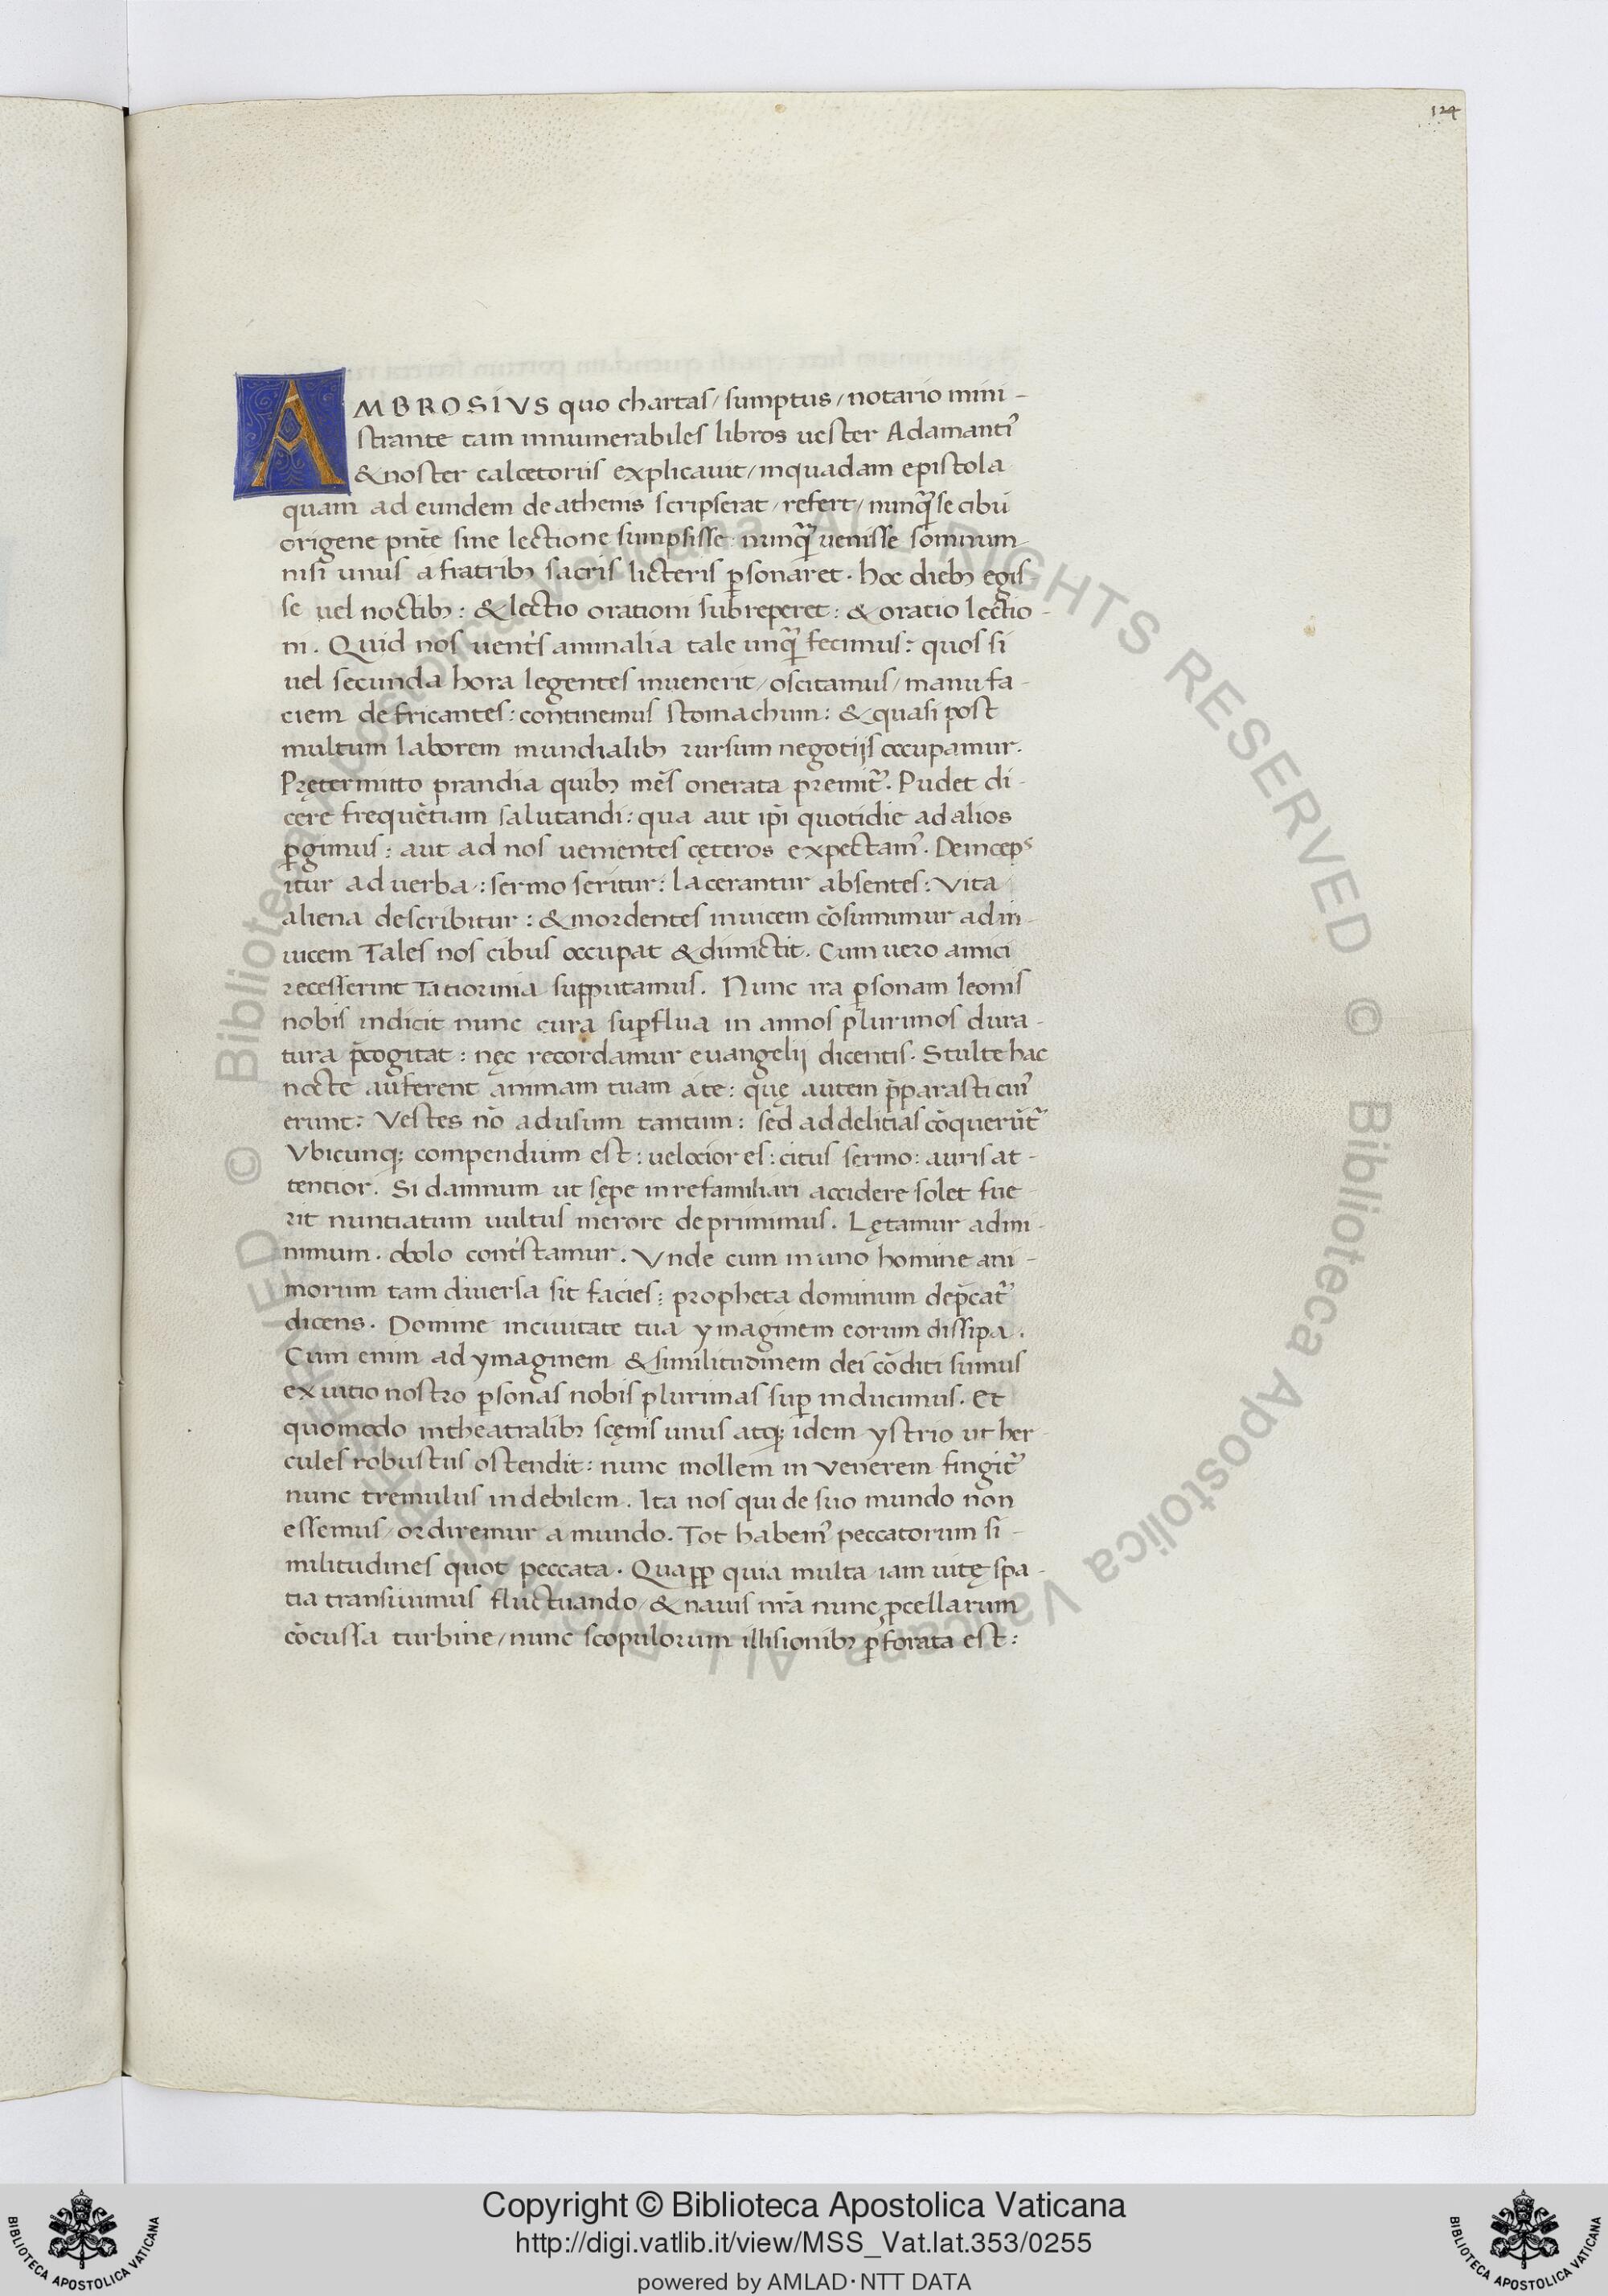 124
AMBROSIVS quo chartas / sumptus / notario mini-
strante tam innumerabiles libros uester Adamanti᾽
& noster calceterus explicauit / inquadam epistola
quam ad eundem de athenis scripserat / refert / nunq̃ se cibū
origene pñte sine lectione sumpsisse nunq̃ uenisse somnum
nisi unus a fratribꝫ sacris licteris ꝑsonaret. hoc diebꝫ egis
se uel noctibꝫ: & lectio orationi subreperet: & oratio lectio-
ni. Quid nos uent᾽s animalia tale unq̃ fecimus: quos si
uel secunda hora legentes inuenerit / oscitamus / manu fa-
ciem defricantes: continemus stomachum: & quasi post
multum laborem mundialibꝫ rursum negotijs occupamur.
Prętermitto prandia quibꝫ mēs onerata premit᾽. Pudet di-
cere frequētiam salutandi: qua aut ip̄i quotidie ad alios
ꝑgimus: aut ad nos uenientes cęteros expectam᾽. Deinceps
itur ad uerba: sermo seritur: lacerantur absentes: Vita
aliena describitur: & mordentes inuicem cōsumimur ad in-
uicem Tales nos cibus occupat & dimictit. Cum uero amici
recesserint Tatiorinia supputamus. Nunc ira ꝑsonam leonis
nobis indicit nunc cura suꝑflua in annos plurimos dura-
tura p̄cogitat: nęc recordamur euangelij dicentis. Stulte hac
nocte auferent animam tuam a te: quę autem p̄parasti cui᾽
erunt: Vestes nō ad usum tantum: sed ad delitias cōquerūt᾽
Vbicunqꝫ compendium est: uelocior es: citus sermo: auris at-
tentior. Si damnum ut sępe in re familiari accidere solet fue
rit nuntiatum uultus merore deprimimus. Lętamur ad mi-
nimum. obolo cont᾽stamur. Vnde cum in uno homine ani-
morum tam diuersa sit facies: propheta dominum dep̄cat᾽
dicens. Domine inciuitate tua ymaginem eorum dissipa.
Cum enim ad ymaginem & similitudinem dei cōditi sumus
ex uitio nostro ꝑsonas nobis plurimas suꝑ inducimus. Et
quomodo intheatralibꝫ scęnis unus atqꝫ idem ystrio ut her-
cules robustus ostendit: nunc mollem in Venerem fingit᾽
nunc tremulus indebilem. Ita nos qui de suo mundo non
essemus / ordiremur a mundo. Tot habem᾽ peccatorum si-
militudines quot peccata. Quaꝓꝑ quia multa iam uitę spa-
tia transiuimus fluctuando / & nauis nr̄a nunc ꝓcellarum
cōcussa turbine / nunc scopulorum illisionibꝫ ꝑforata est:
© Biblioteca Apostolica Vaticana ALL RIGHTS RESERVED © Biblioteca Apostolica Vaticana ALL RIGHTS RESERVED
BIBLIOTECA APOSTOLICA VATICANA
Copyright © Biblioteca Apostolica Vaticana
http://digi.vatlib.it/view/MSS_Vat.lat.353/0255
powered by AMLAD·NTT DATA
BIBLIOTECA APOSTOLICA VATICANA